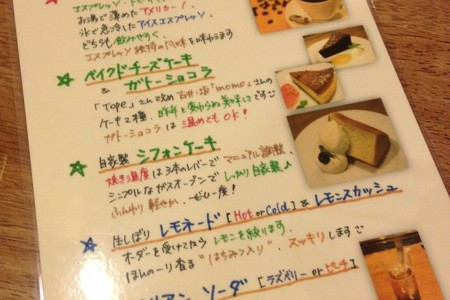 エスプレッソ
お湯で薄めたアメリカーノ
氷で急冷したアイスエスプレッソ
どちらも飲みやすく、
エスプレッソ独特の風味を味わえます
☆ ベイクドチーズケーキ
& ガトーショコラ
「Tope」さん改め 「momo」さんの
ケーキ2種。昨年と変わらぬ美味しさです
ガトーショコラは温めてもOK!
☆ 自家製 シフォンケーキ
焼き温度は3本のレバーでマニュアル調整。
シンプルなガスオーブンでしっかり自家製♪
ふんわり軽やか、ぜひ一度!
☆ 生しぼり レモネード [Hot or Cold] & レモンスカッシュ
オーダーを受けてからレモンを絞ります。
ほんのり香る "はちみつ入り"。スッキリします
リアン ソーダ [ラズベリー or ピーチ]